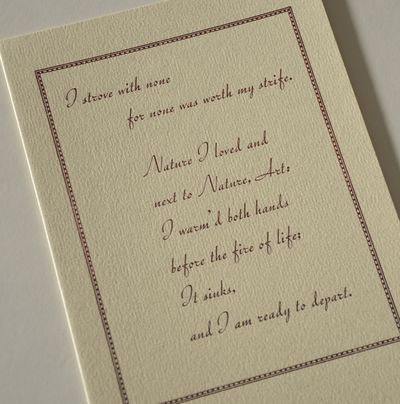 I strove with none
for none was worth my strife.
Nature I loved and
next to Nature, Art:
I warm'd both hands
before the fire of life;
It sinks,
and I am ready to depart.